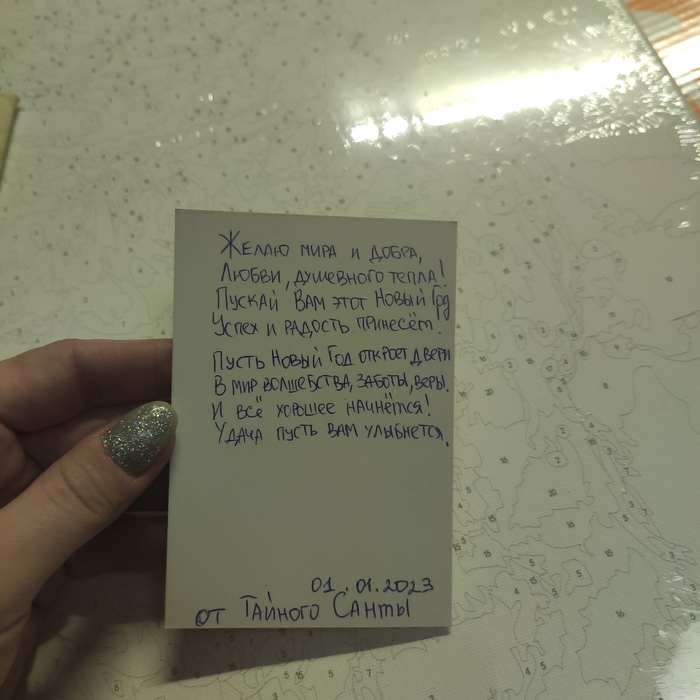 Желаю мира и добра,
Любви, душевного тепла!
Пускай Вам этот Новый Год
Успех и радость принесёт.
Пусть Новый Год откроет двери
В мир волшебства, заботы, веры.
И всё хорошее начнётся!
Удача пусть вам улыбнется.
01.01.2023
от Тайного Санты